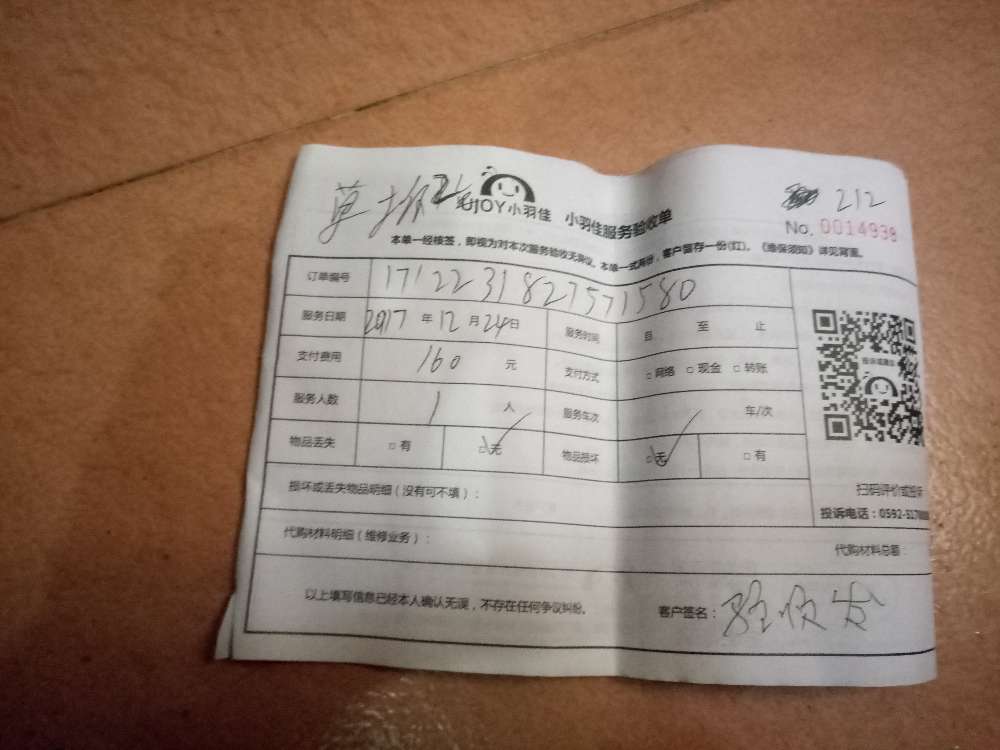 212
EJOY小羽佳 小羽佳服务验收单
No. 0014938
本单一经核签，即视为对本次服务验收无异议。本单一式两份，客户留存一份(红)。《维保须知》详见背面。
订单编号 171223182757 1580
服务日期 2017 年 12 月 24 日 服务时间 自 至 止
支付费用 160 元 支付方式 □网络 □现金 □转账
服务人数 1 人 服务车次 车/次
物品丢失 □有 □无 物品损坏 □无 □有
投诉或建议
扫码评价或投诉
投诉电话：0592-5170
损坏或丢失物品明细（没有可不填）：
代购材料明细（维修业务）： 代购材料总额：
以上填写信息已经本人确认无误，不存在任何争议纠纷。 客户签名：